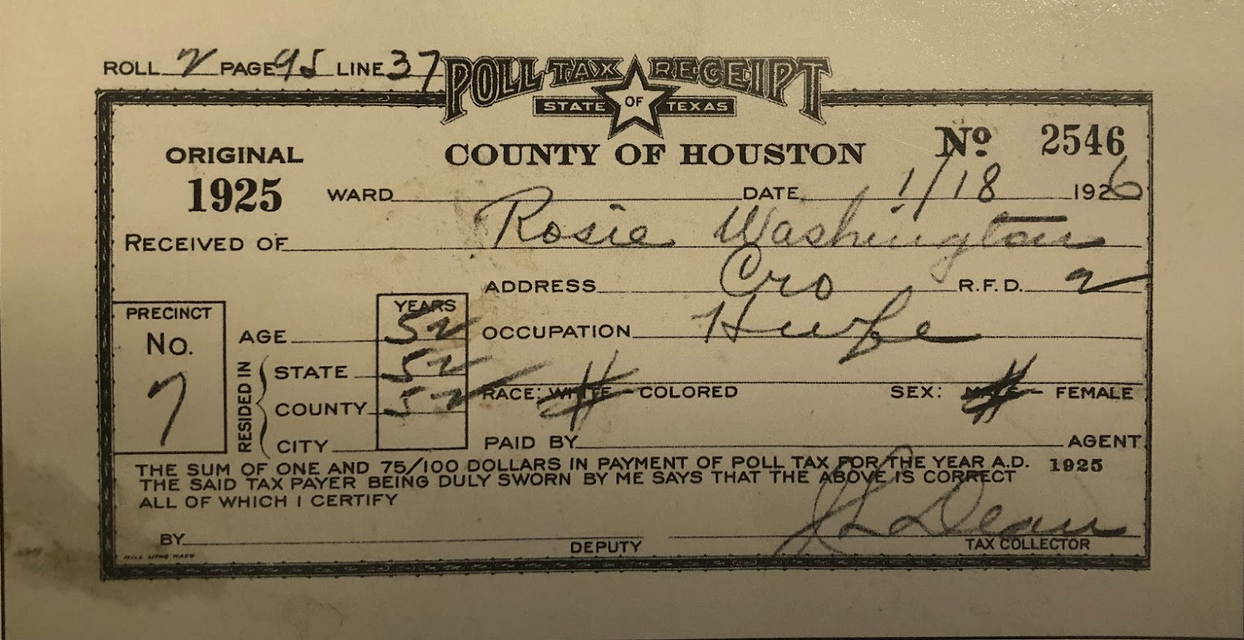 ROLL 2 PAGE 95 LINE 37
POLL TAX RECEIPT
STATE OF TEXAS
COUNTY OF HOUSTON
No 2546
ORIGINAL
1925
WARD DATE 1/18 1926
RECEIVED OF Rosie Washington
ADDRESS Cro R.F.D. 2
PRECINCT
No.
7
YEARS
AGE 52
RESIDED IN
STATE 52
COUNTY 52
CITY
OCCUPATION Hwfe
RACE: WHITE COLORED SEX: MALE FEMALE
PAID BY AGENT
THE SUM OF ONE AND 75/100 DOLLARS IN PAYMENT OF POLL TAX FOR THE YEAR A.D. 1925
THE SAID TAX PAYER BEING DULY SWORN BY ME SAYS THAT THE ABOVE IS CORRECT
ALL OF WHICH I CERTIFY
J L Dean
BY DEPUTY TAX COLLECTOR